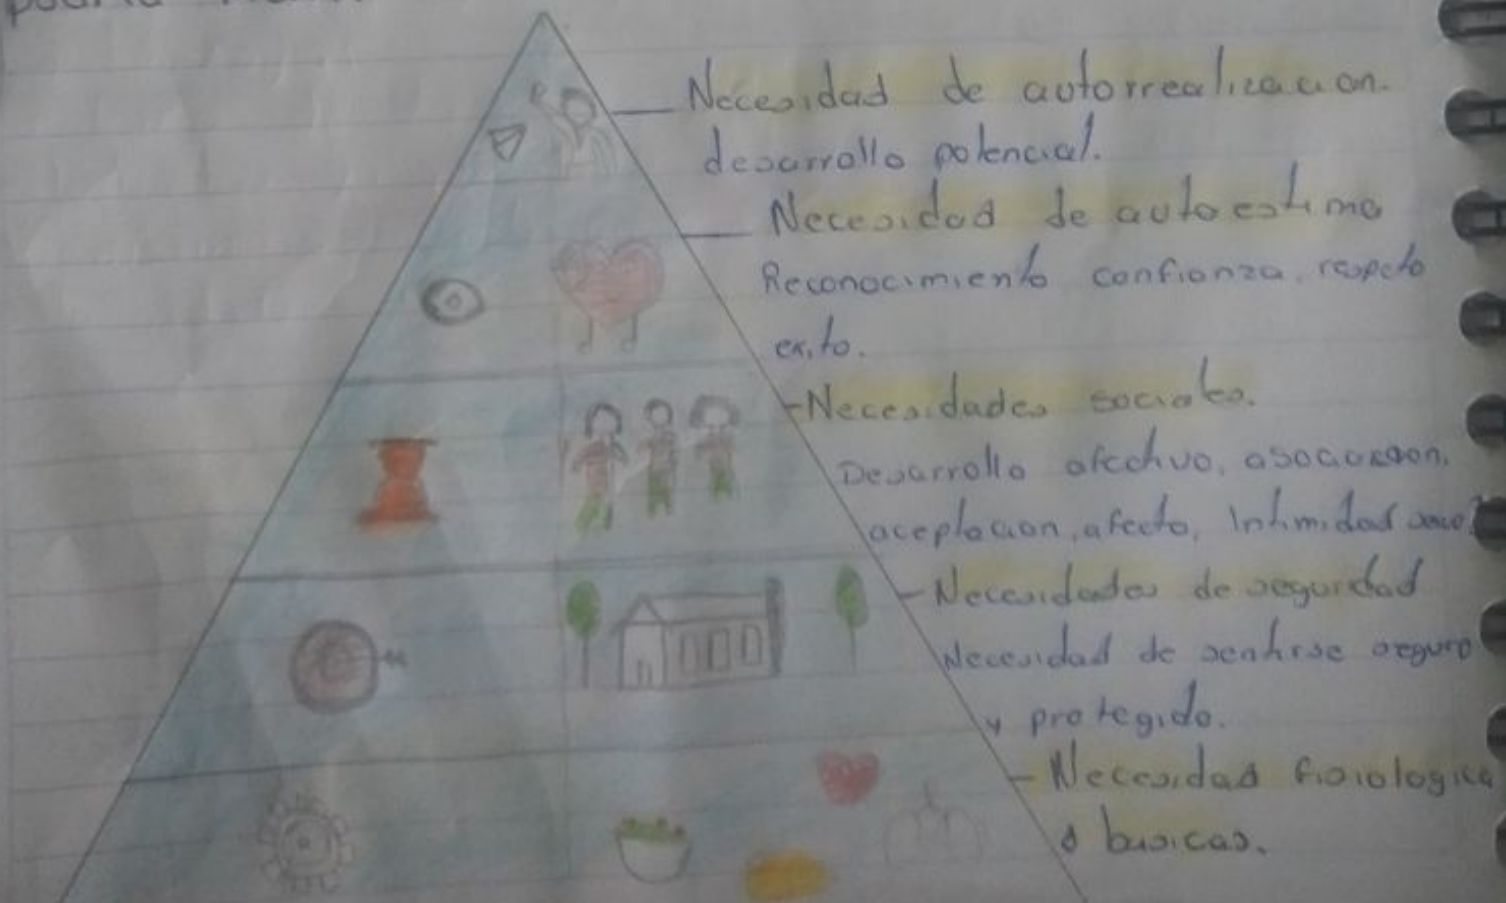 Necesidad de autorrealizacion.
desarrollo potencial.
Necesidad de autoestima
Reconocimiento confianza, respeto
exito.
-Necesidades sociales.
Desarrollo afectivo, asociacion,
aceptacion, afecto, Intimidad
-Necesidades de seguridad
Necesidad de sentirse seguro
y protegido.
-Necesidad fisiologica
o basicas.